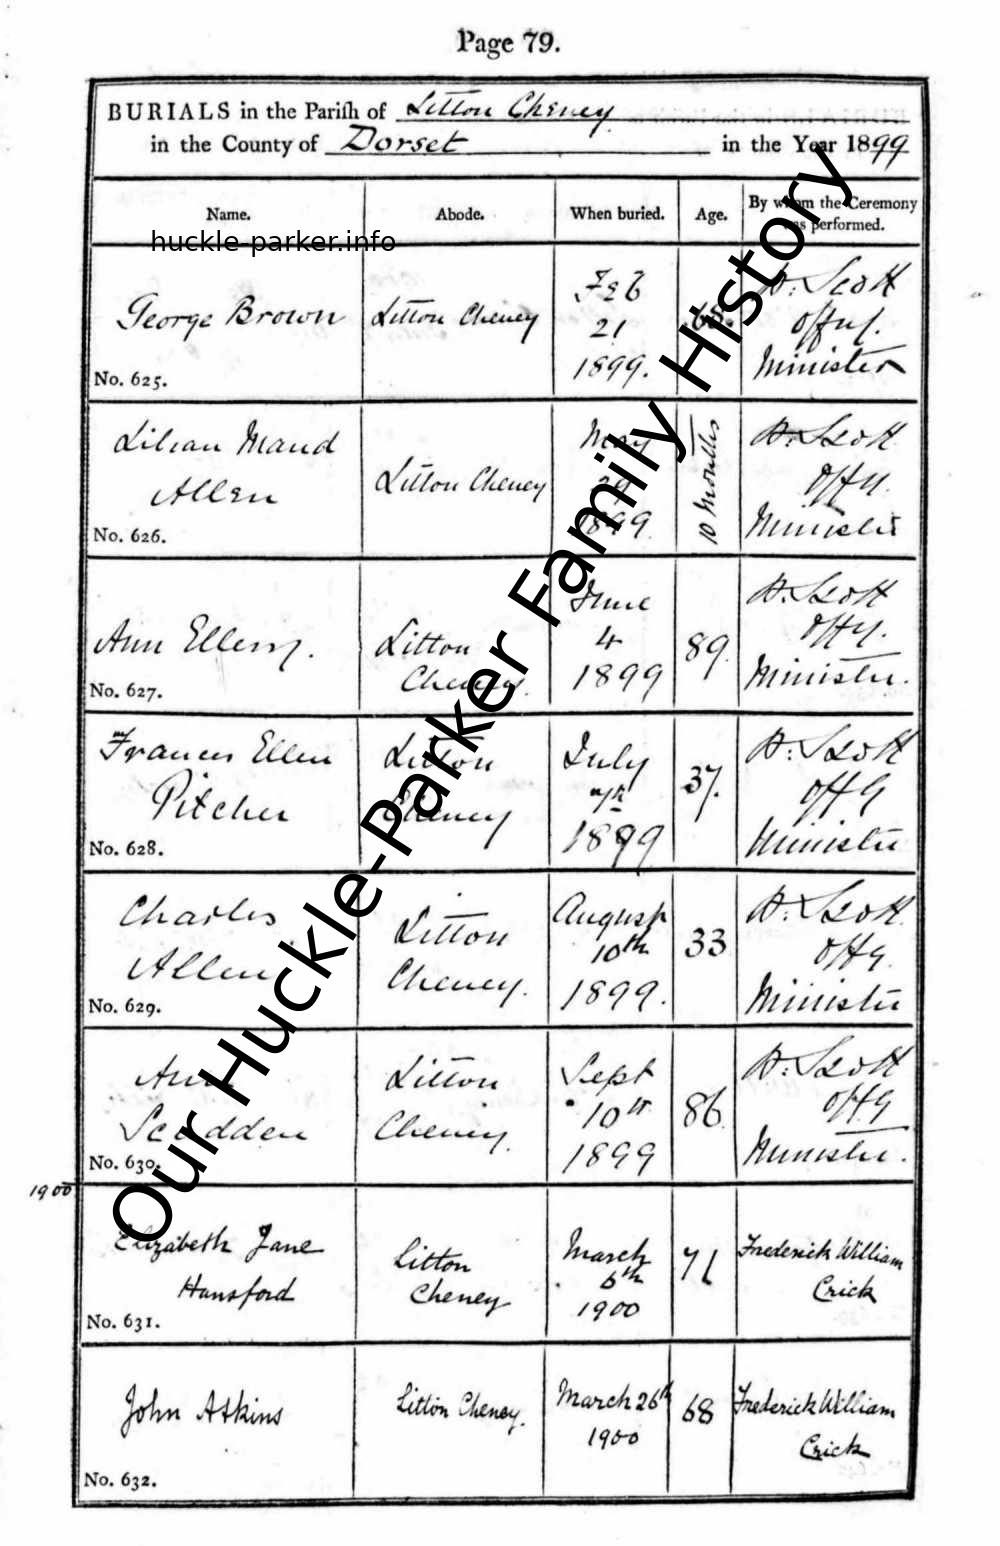 Page 79.
BURIALS in the Parish of Litton Cheney
in the County of Dorset in the Year 1899
Name. Abode. When buried. Age. By whom the Ceremony was performed.
huckle-parker.info
George Brown
Litton Cheney
Feb
21
1899.
68.
Scott
Minister
No. 625.
Lilian Maud
Allen
Litton Cheney
May
1899
10 Months
Scott
Minister
No. 626.
Ann Ellery.
Litton
Cheney.
June
4
1899
89.
Scott
Minister.
No. 627.
Frances Ellen
Pitcher
Litton
Cheney
July
1899
37.
Scott
Minister
No. 628.
Charles
Allen
Litton
Cheney.
August
10th
1899.
33
Scott
Minister
No. 629.
Ann
Scadden
Litton
Cheney.
Sept
10th
1899
86.
Scott
Minister.
No. 630.
1900
Elizabeth Jane
Hansford
Litton
Cheney
March
6th
1900
71
Frederick William
Crick
No. 631.
John Askins
Litton Cheney.
March 26th
1900
68
Frederick William
Crick
No. 632.
Our Huckle-Parker Family History